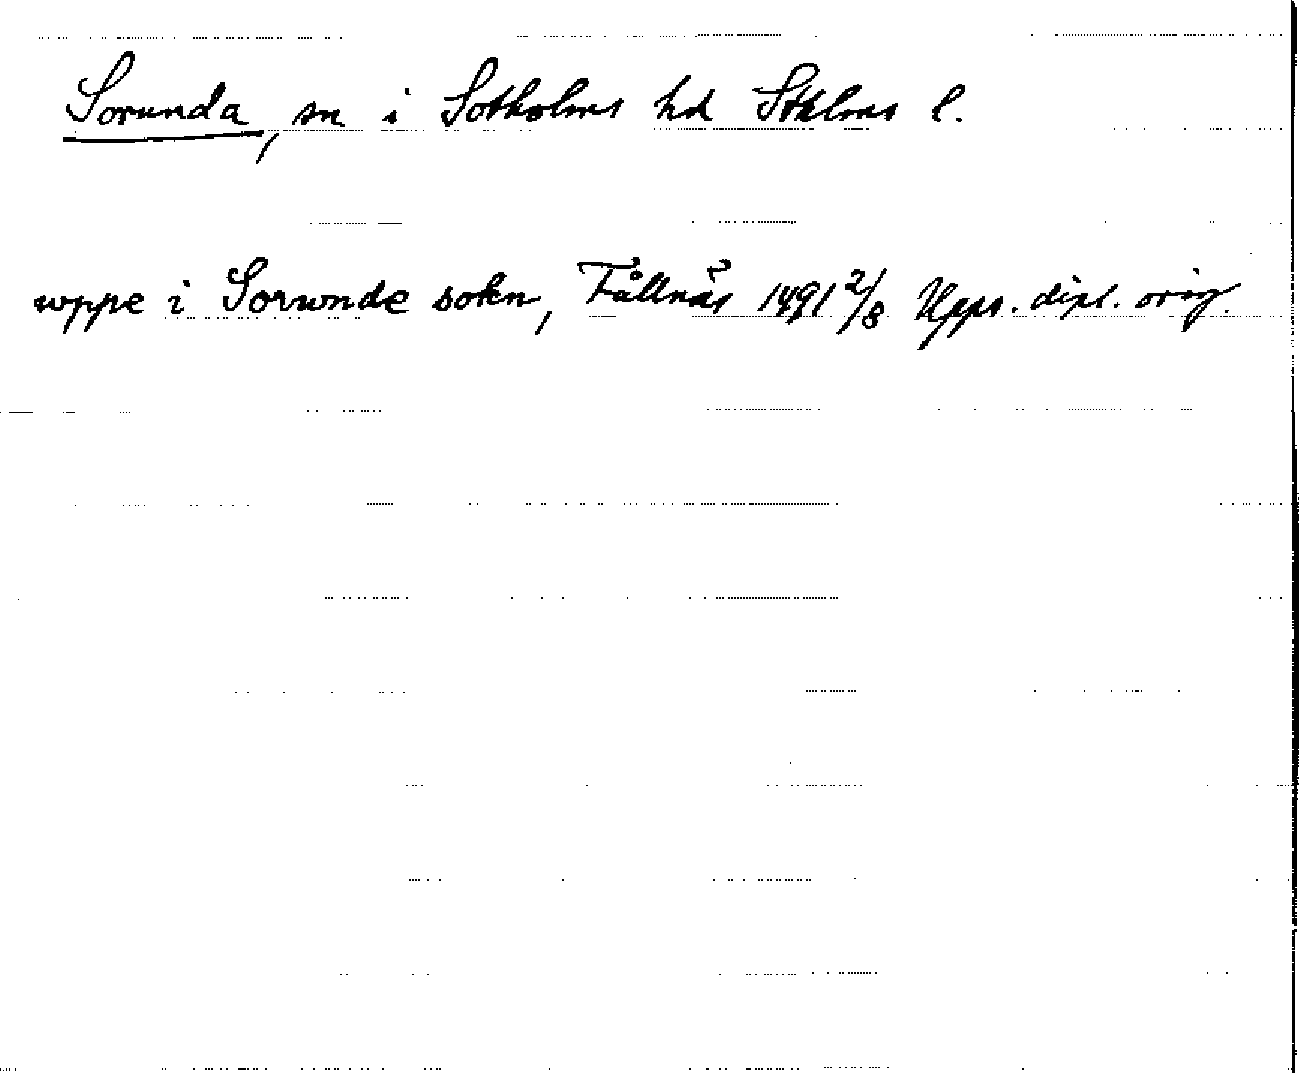 Sorunda, sn i Sotholms hd Sthlms l.
wppe i Sorwnde sokn, Fållnäs 1491 2/8 Upps. dipl. orig.